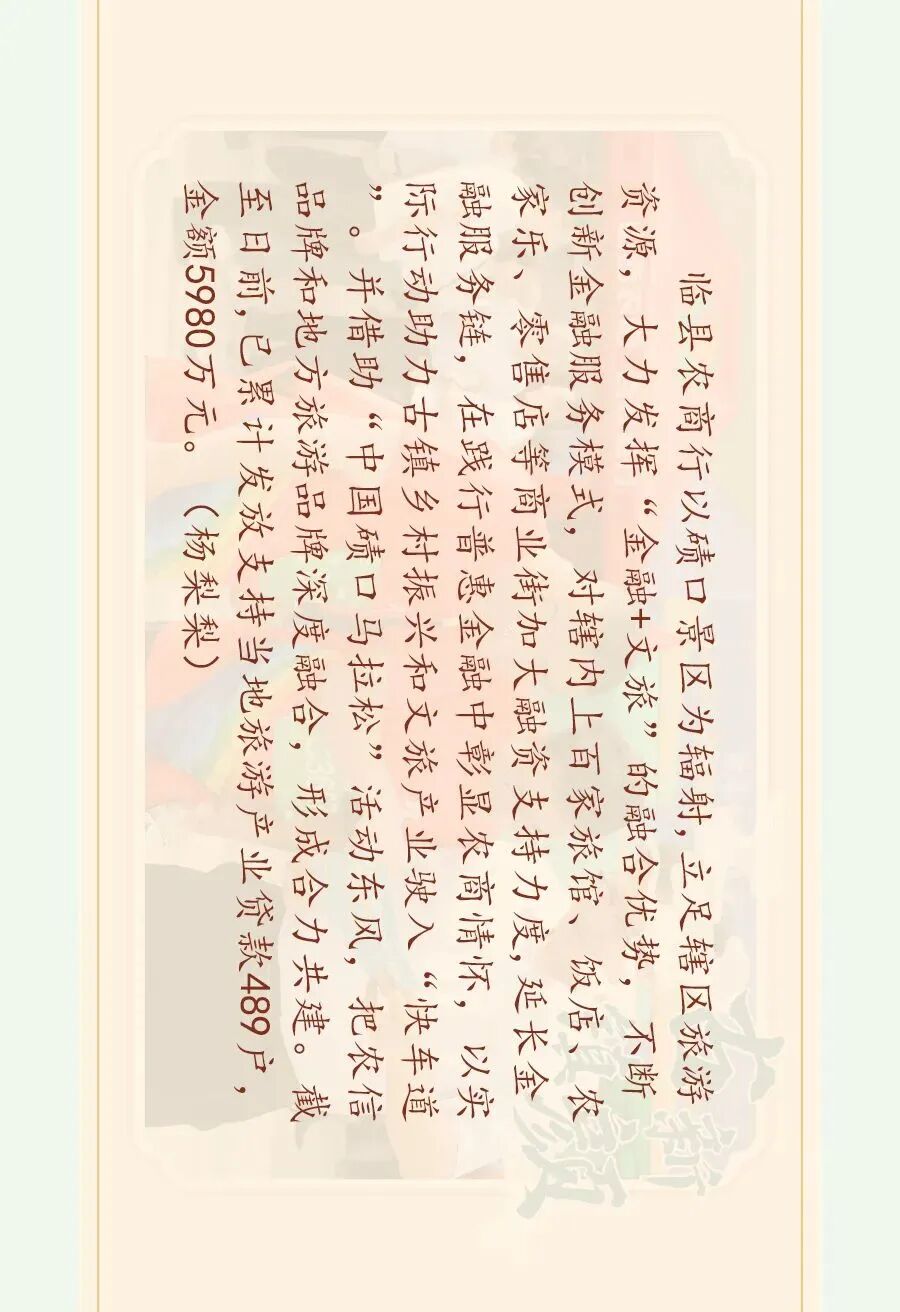 临县农商行以碛口景区为辐射，立足辖区旅游
资源，大力发挥“金融+文旅”的融合优势，不断
创新金融服务模式，对辖内上百家旅馆、饭店、农
家乐、零售店等商业街加大融资支持力度，延长金
融服务链，在践行普惠金融中彰显农商情怀，以实
际行动助力古镇乡村振兴和文旅产业驶入“快车道
”。并借助“中国碛口马拉松”活动东风，把农信
品牌和地方旅游品牌深度融合，形成合力共建。截
至日前，已累计发放支持当地旅游产业贷款489户，
金额5980万元。（杨梨梨）
古镇
新颜